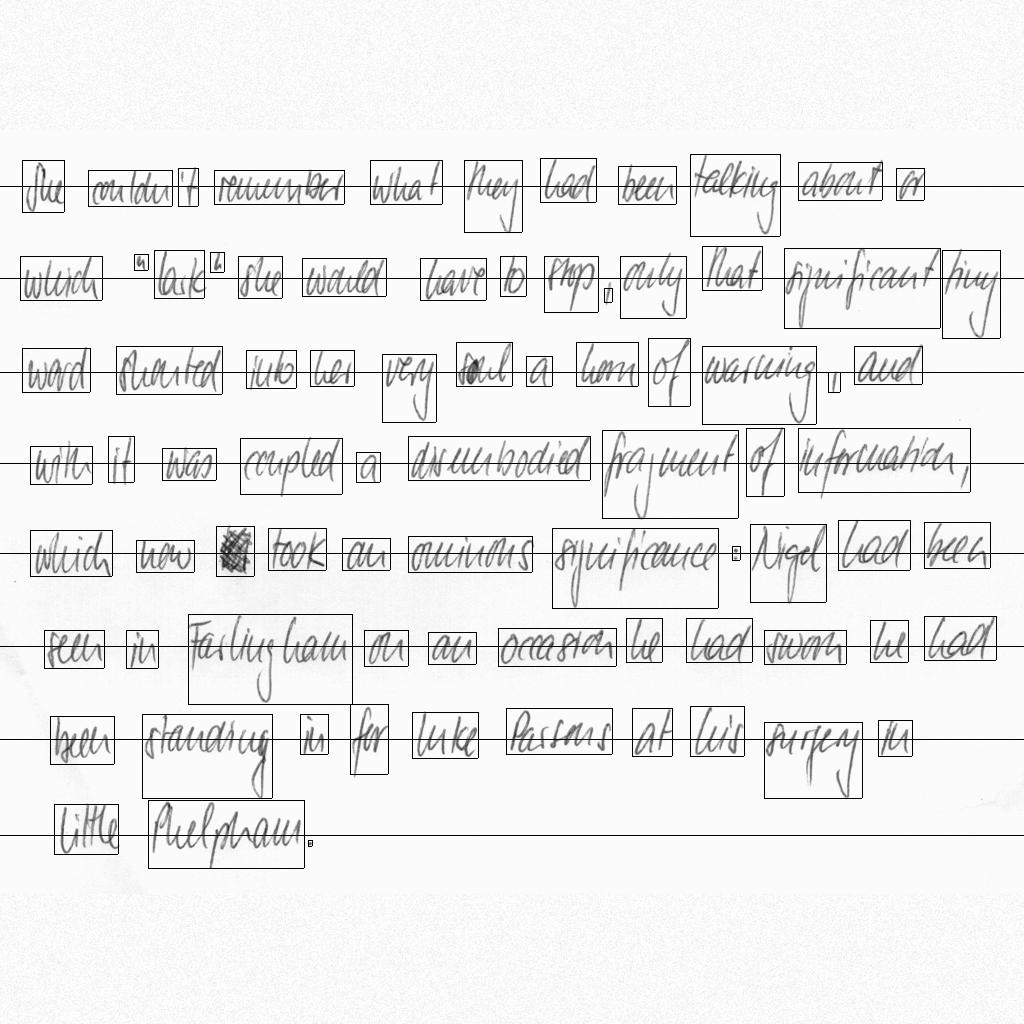 She couldn't remember what they had been talking about or
which "lark" she would have to stop, only that significant tiny
word shouted into her very soul a horn of warning, and
with it was coupled a disembodied fragment of information,
which now took an ominous significance. Nigel had been
seen in Farlingham on an occasion he had sworn he had
been standing in for Luke Parsons at his surgery in
Little Phelpham.